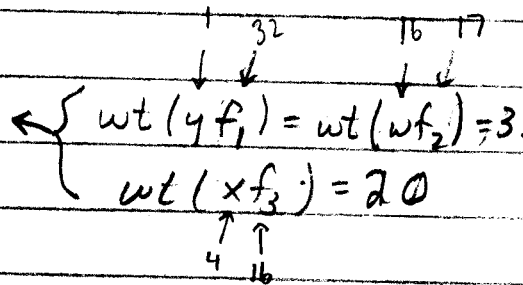 1 32 16 17
wt(yf₁) = wt(wf₂) = 3
wt(xf₃) = 20
4 16